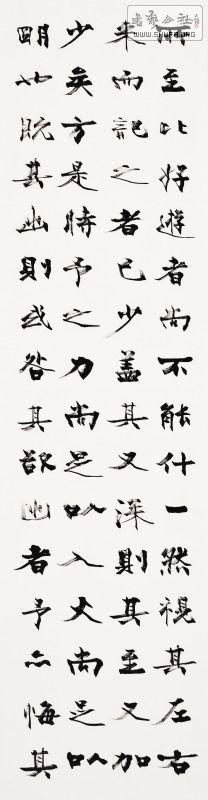 所至比好遊者尚不能什一然視其左右
来而記之者已少蓋其又深則其至又加
少矣方是時予之力尚足以入火尚足以
明也既其出則或咎其欲出者予亦悔其
书艺公社
WWW.SHUFA.ORG